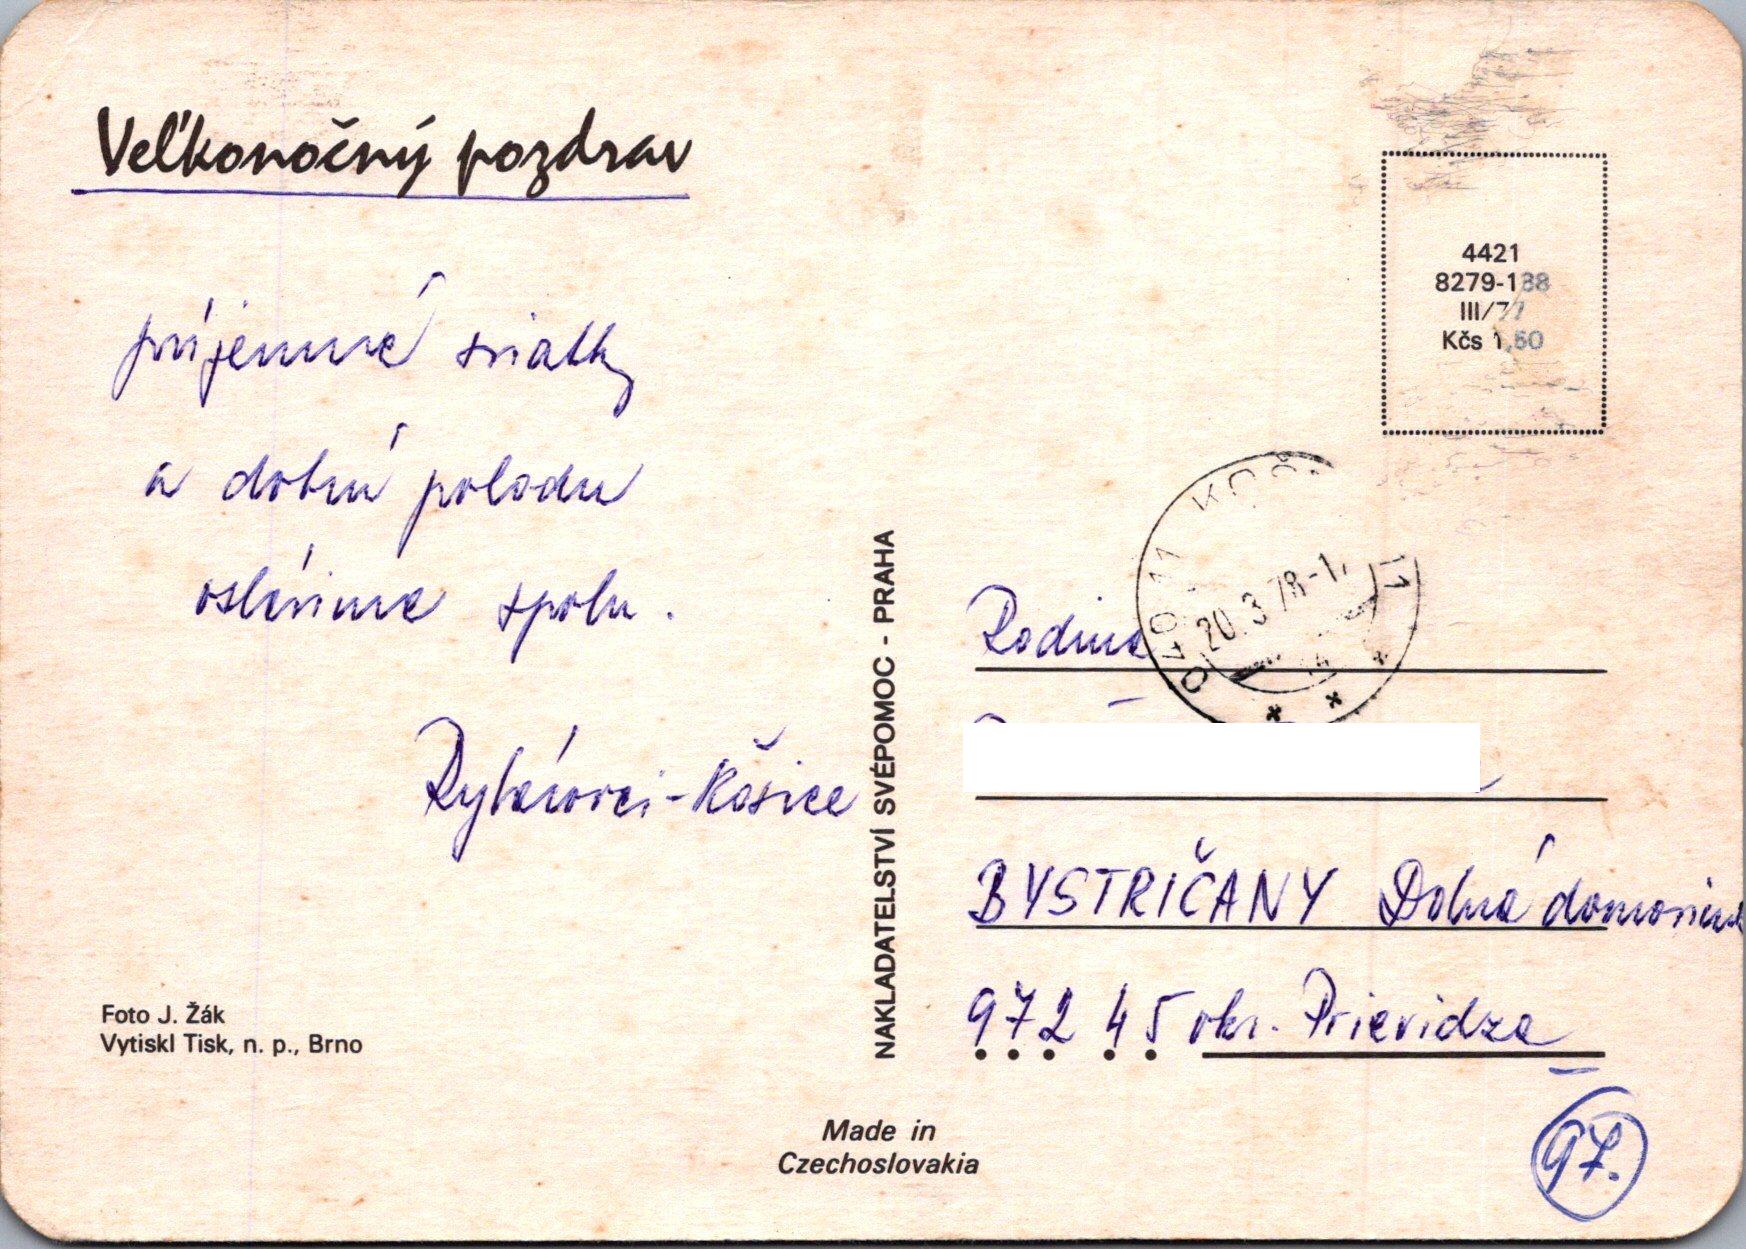 Veľkonočný pozdrav
príjemné sviatky
a dobrú pohodu
oslávime spolu.
Rybárovci - Košice
Foto J. Žák
Vytiskl Tisk, n. p., Brno
NAKLADATELSTVÍ SVÉPOMOC - PRAHA
Made in
Czechoslovakia
4421
8279-188
III/77
Kčs 1,50
040 11 KOŠI 11
20.3.78-1
Rodina
BYSTRIČANY Dolná
972 45 okr. Prievidza
97.